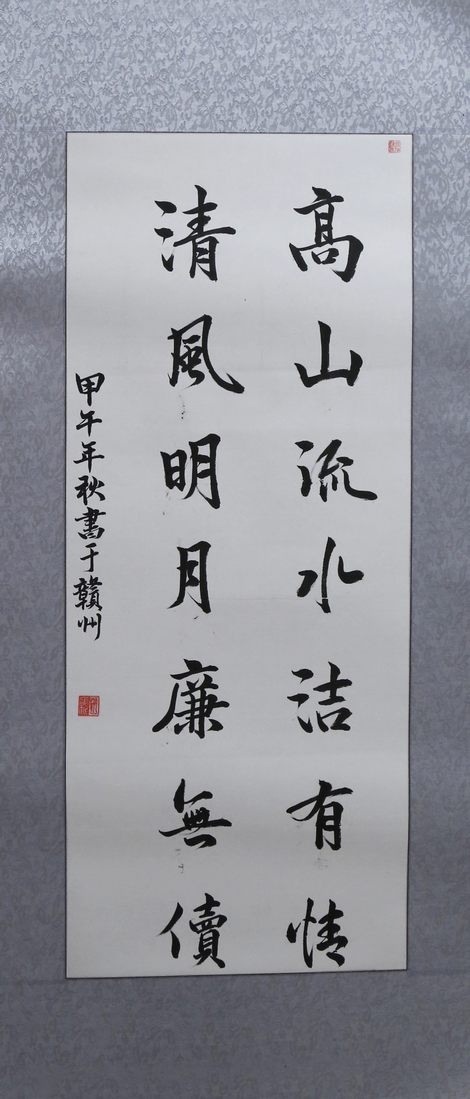 高山流水洁有情
清風明月廉無價
甲午年秋書于贛州